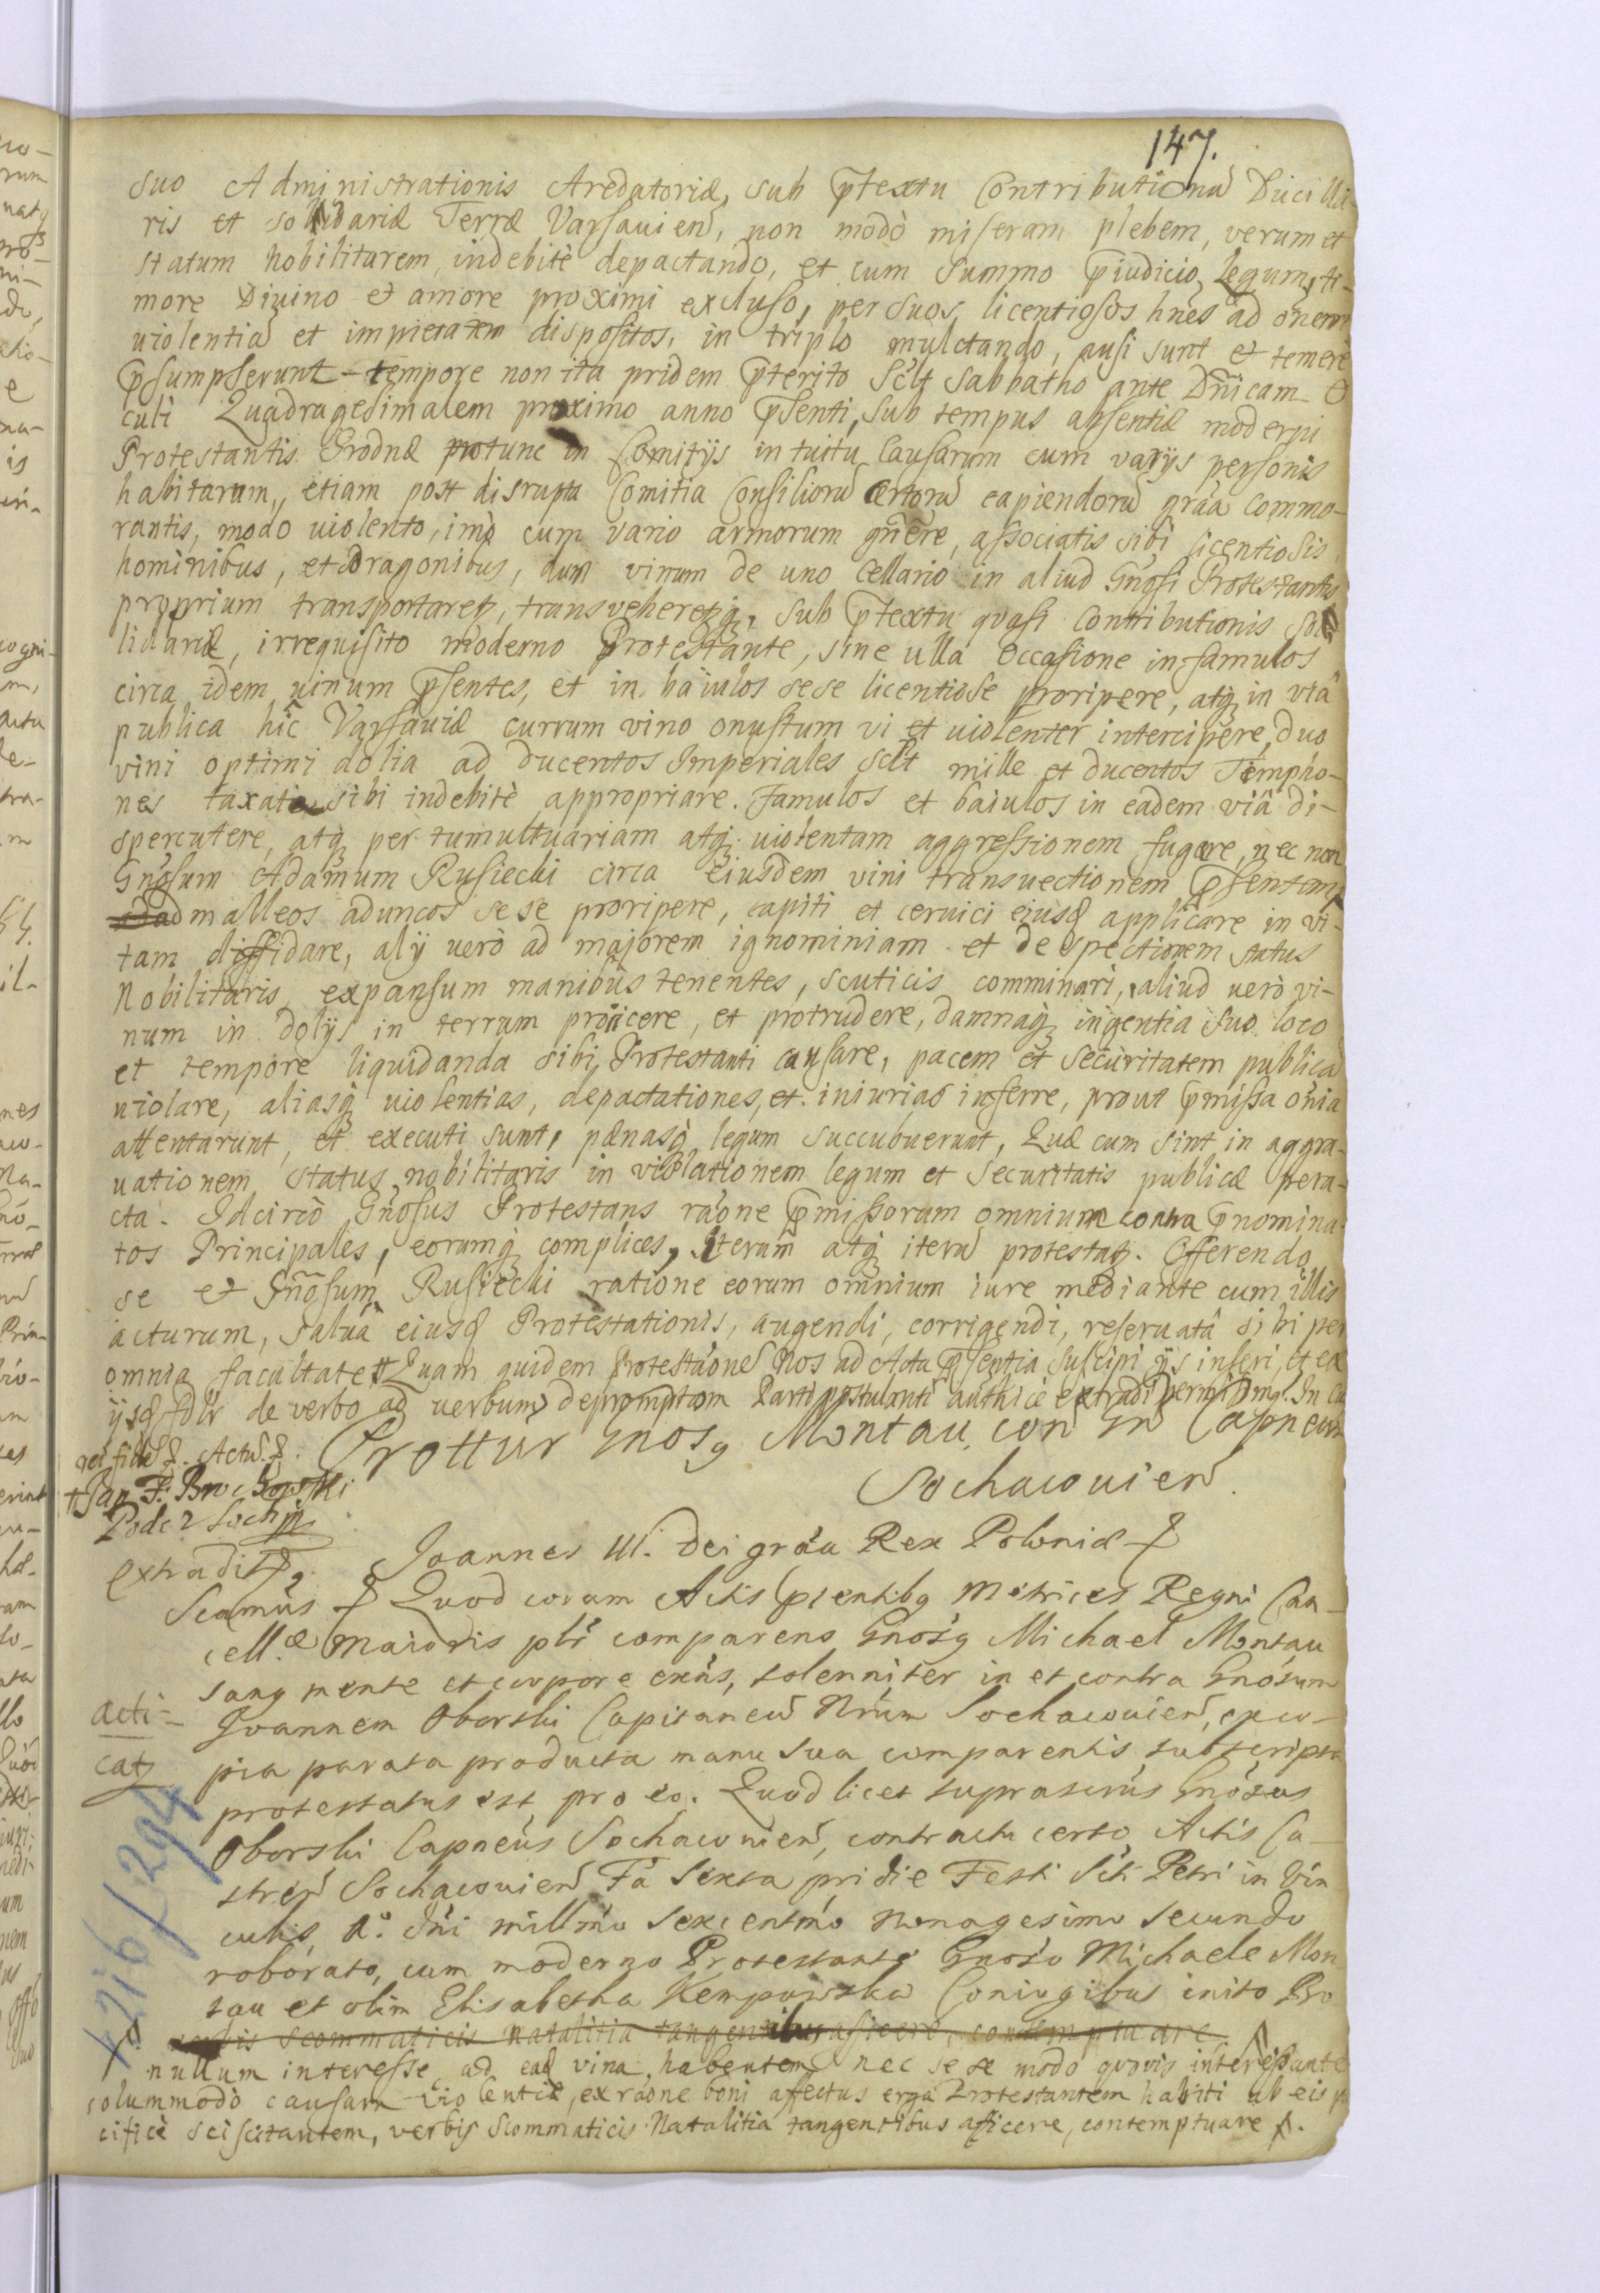 147.
suo Administrationis Aredatoriæ, sub ptextu Contributionũ Ducilla-
ris et solidariæ Terræ Varsauien, non modò miseram plebem, verum et
statum nobilitarem indebitè depactando, et cum summo piudicio Legum, ti-
more Diuino et amore proximi excluso, per suos licentiosos hnes ad onem
uiolentiã et impietatem dispositos, in triplo mulctando, ausi sunt et temerè
psumpserunt tempore non ita pridem pterito sclt Sabbatho ante Dñicam O
culi Quadragesimalem proximo anno psenti, sub tempus absentiæ moderni
Protestantis Grodnæ protunc in Comitijs intuitu Causarum cum varijs personis
habitarum, etiam post disrupta Comitia Consiliorũ certorũ capiendorũ grãa commo-
rantis, modo uiolento, imò cum vario armorum gñere, associatis sibi licentiosis
hominibus, et Dragonibus, dum vinum de uno Cellario in aliud Gnosi Protestantis
proprium transportaret, transveheretq, sub ptextu quasi Contributionis so
lidariæ, irrequisito moderno Protestante, sine ulla occasione in famulos
circa idem uinum psentes, et in baiulos sese licentiose proripere, atq in viâ
publica hic Varsauiæ currum vino onustum vi et uiolenter intercipere, duo
vini optimi dolia ad ducentos Imperiales sclt mille et ducentos Tempho-
nes taxata sibi indebitè appropriare. Famulos et baiulos in eadem viâ di-
spercutere, atq per tumultuariam atq uiolentam aggressionem fugare, nec non
Gnosum Adamum Rusiecki circa eiusdem vini transuectionem psentem
ad malleos aduncos sese proripere, capiti et ceruici eiusd applicare in vi-
tam diffidare, alij verò ad majorem ignominiam et despectionem status
Nobilitaris expansum manibus tenentes, scuticis comminari, aliud uerò vi-
num in dolijs in terram proijcere, et protrudere, damnaq ingentia suo loco
et tempore liquidanda sibi Protestanti causare, pacem et securitatem publicã
uiolare, aliasq uiolentias, depactationes, et iniurias inferre, prout pmissa onia
attentarunt, et executi sunt, pænasq legum succubuerunt, Quæ cum sint in aggra-
uationem status nobilitaris in violationem legum et securitatis publicæ pera-
cta. Idcircò Gnosus Protestans raône pmissorum omnium contra pnomina-
tos Principales, eorumq complices, Iterum atq iterũ protestatr. Offerendo
se et Gnosum Rusiecki ratione eorum omnium iure mediante cum illis
acturum, salua eiusd Protestationis, augendi, corrigendi, reseruatâ sibi per
omnia facultate # Quam quidem Protestãonẽ Nos ad Acta psentia suscipi ijs inseri, et ex
ijsd fdlr de verbo ad uerbum depromptam Parti postulanti authicè extradi permisimus. In Cu
rei fidẽ &. Actũ &.
+ Jan F. Brochowski
Podcz Sochj
extradit
Prottur Gnosq Montau con Gn Capneum
Sochacouien.
Joannes III. Dei grãa Rex Poloniæ &
Scamus & Quod coram Actis pientibq Metrices Regni Can-
cellæ Maioris plr comparens Gnosq Michael Montau
sanq mente et corpore exñs, solenniter in et contra Gnosum
acti-
catq
Joannem Oborski Capitaneũ Nrum Sochacouien, ex co-
pia parata producta manu sua comparentis subscripta
protestatus est pro eo. Quod licet suprascrus Gnosus
Oborski Capneus Sochacouien, contractu certo Actis Ca-
stren Sochacouien Fa Sexta pridie Festi Scti Petri in Vin
culis Ao Dni millmo sexcentmo Nonagesimo secundo
roborato, cum moderno Protestante Gnoso Michaele Mon
tau et olim Elisabetha Kempowska Coniugibus inito Pro
4216/294
verbis scommaticis natalitia tangentibus aficere, contemptuare
nullum interesse ad ead vina habentem nec sese modo quovis interessante
solummodo causam violentiæ, ex raone boni affectus erga Protestantem habiti ab eis pa
cificè sciscitantem, verbis scommaticis Natalitia tangentibus afficere, contemptuare